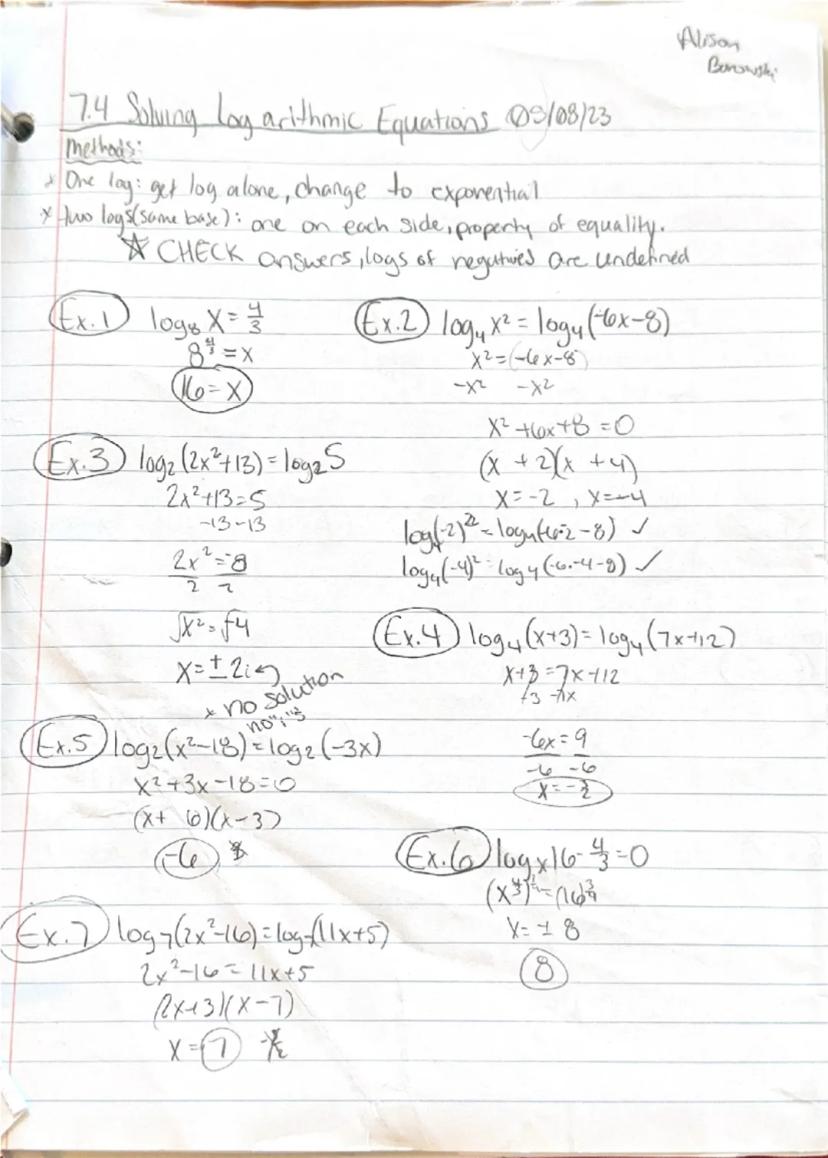 Alison
7.4 Solving Logarithmic Equations 05/08/23
Methods:
* One log: get log alone, change to exponential
* two logs (same base): one on each side, property of equality.
☆ CHECK answers, logs of negatives are undefined
Ex. 1 log₈ X = 4/3
8^(4/3) = x
16 = x
Ex. 2 log₄ x² = log₄(-6x-8)
x² = (-6x-8)
-x² -x²
x² + 6x + 8 = 0
(x + 2)(x + 4)
x = -2 , x = -4
log₄(-2)² = log₄(-6·-2 - 8) ✓
log₄(-4)² = log₄(-6·-4-8) ✓
Ex. 3 log₂(2x²+13) = log₂5
2x²+13 = 5
-13 -13
2x² = -8
2 2
√x² = √-4
x = ± 2i
* no solution
no "i"s
Ex. 4 log₄(x+3) = log₄(7x+12)
x+3 = 7x+12
-3 -7x
-6x = 9
-6 -6
x = -3/2
Ex. 5 log₂(x²-18) = log₂(-3x)
x²+3x-18 = 0
(x+ 6)(x-3)
-6
Ex. 6 logₓ16 - 4/3 = 0
x = ± 8
8
Ex. 7 log₇(2x²-16) = log₇(11x+5)
2x²-16 = 11x+5
(2x+3)(x-7)
x = 7